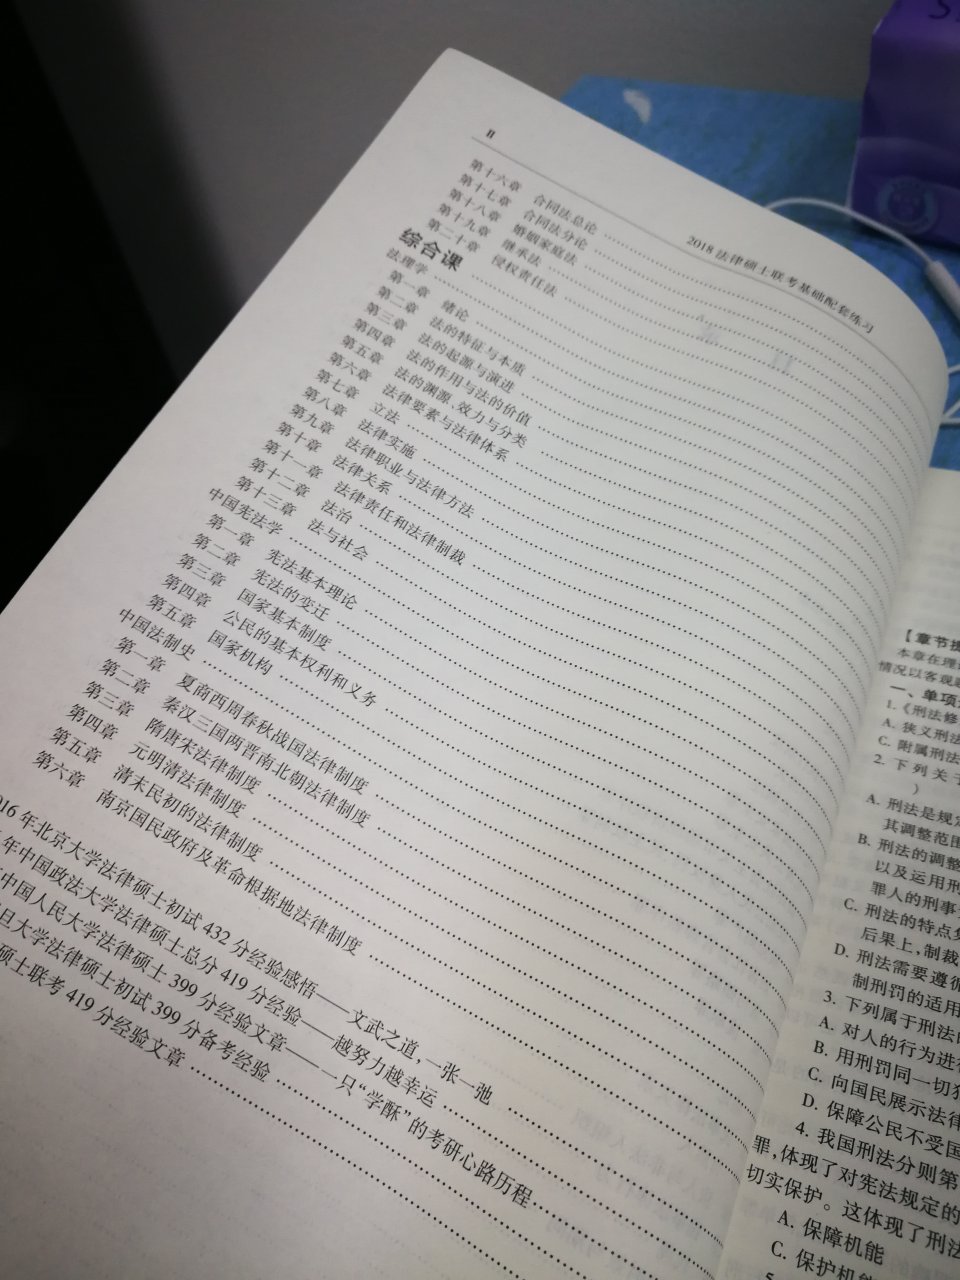 II
2018 法律硕士联考基础配套练习
第十六章 合同法总论
第十七章 合同法分论
第十八章 婚姻家庭法
第十九章 继承法
第二十章 侵权责任法
综合课
法理学
第一章 绪论
第二章 法的特征与本质
第三章 法的起源与演进
第四章 法的作用与法的价值
第五章 法的渊源、效力与分类
第六章 法律要素与法律体系
第七章 立法
第八章 法律实施
第九章 法律职业与法律方法
第十章 法律关系
第十一章 法律责任和法律制裁
第十二章 法治
第十三章 法与社会
中国宪法学
第一章 宪法基本理论
第二章 宪法的变迁
第三章 国家基本制度
第四章 公民的基本权利和义务
第五章 国家机构
中国法制史
第一章 夏商西周春秋战国法律制度
第二章 秦汉三国两晋南北朝法律制度
第三章 隋唐宋法律制度
第四章 元明清法律制度
第五章 清末民初的法律制度
第六章 南京国民政府及革命根据地法律制度
16 年北京大学法律硕士初试 432 分经验感悟——文武之道,一张一弛
年中国政法大学法律硕士总分 419 分经验——越努力越幸运
中国人民大学法律硕士 399 分经验文章——一只“学酥”的考研心路历程
旦大学法律硕士初试 399 分备考经验
硕士联考 419 分经验文章
【章节
本章在理
情况以客观
一、单项
1.《刑法修
A. 狭义刑法
C. 附属刑法
2. 下列关于
)
A. 刑法是规定
其调整范围
B. 刑法的调整
以及运用刑
罪人的刑事
C. 刑法的特点
后果上,制裁
D. 刑法需要遵循
制刑罚的适用
3. 下列属于刑法
A. 对人的行为进行
B. 用刑罚同一切犯
C. 向国民展示法律
D. 保障公民不受国
4. 我国刑法分则第
罪,体现了对宪法规定的
切实保护。这体现了刑法
A. 保障机能
C. 保护机能